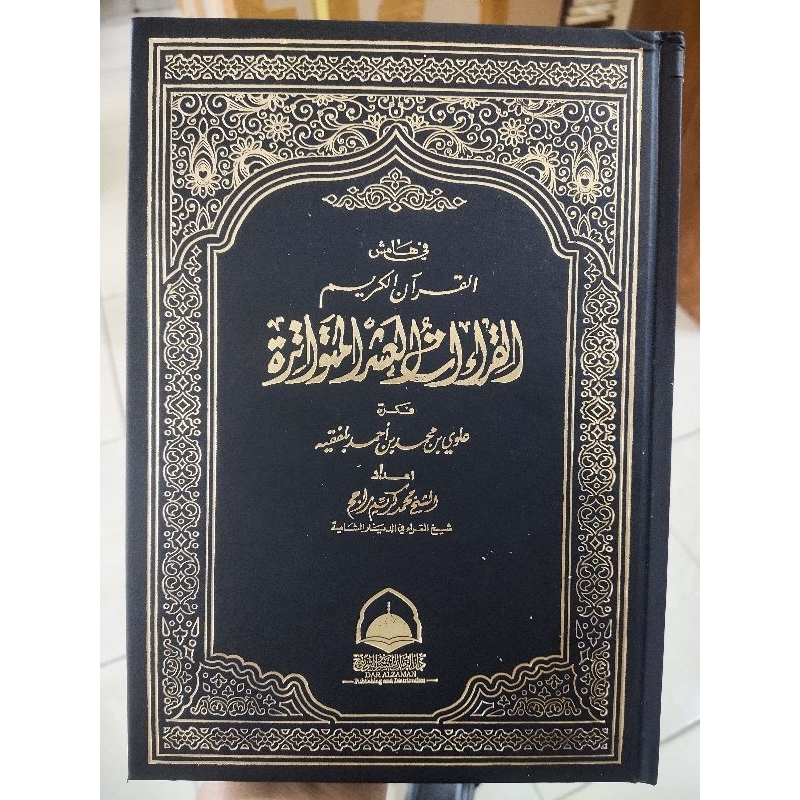 في هامش
القرآن الكريم
القراءات العشر المتواترة
فكرة
علوي بن محمد بن أحمد بلفقيه
إعداد
الشيخ محمد كريم راجح
شيخ القراء في الديار الشامية
DAR ALZAMAN
Publishing and Distribution